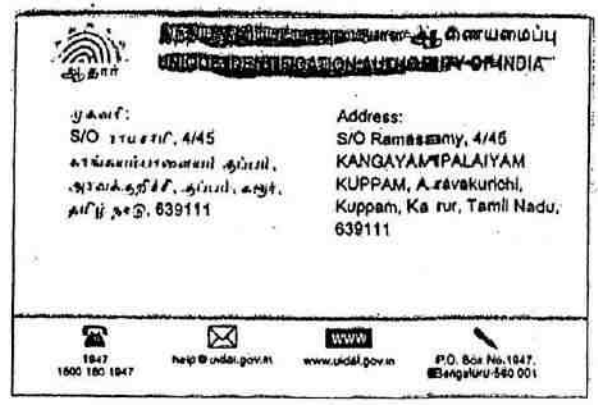 ஆதார்
ஆணையமைப்பு
UNIQUE IDENTIFICATION AUTHORITY OF INDIA
முகவரி:
S/O ராமசாமி, 4/45
காங்கயம்பாளையம் குப்பம்,
அரவக்குறிச்சி, குப்பம், கரூர்,
தமிழ் நாடு, 639111
Address:
S/O Ramasamy, 4/45
KANGAYAMPALAIYAM
KUPPAM, Aravakurichi,
Kuppam, Karur, Tamil Nadu,
639111
1947
1800 180 1947
help@uidai.gov.in
www
www.uidai.gov.in
P.O. Box No.1947,
Bengaluru-560 001